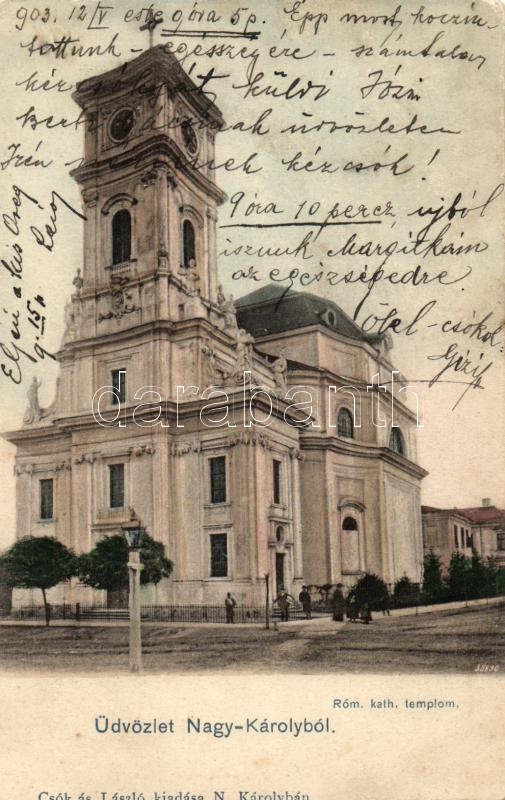 903. 12/V este 9 óra 5 p. Épp most koczin-
tottunk - egészségére - számtalan
kézcsókját küldi Józsi
Berti annak üdvözleten
Irén kézcsók!
9 óra 10 percz újból
iszunk Margitkám
az egészségedre.
Ölel - csókol
Gizi
Éljen a kis Öreg
Lány
9. 15.
darabanth
35890
Róm. kath. templom.
Üdvözlet Nagy-Károlyból.
Csók és László kiadása N. Károlyban